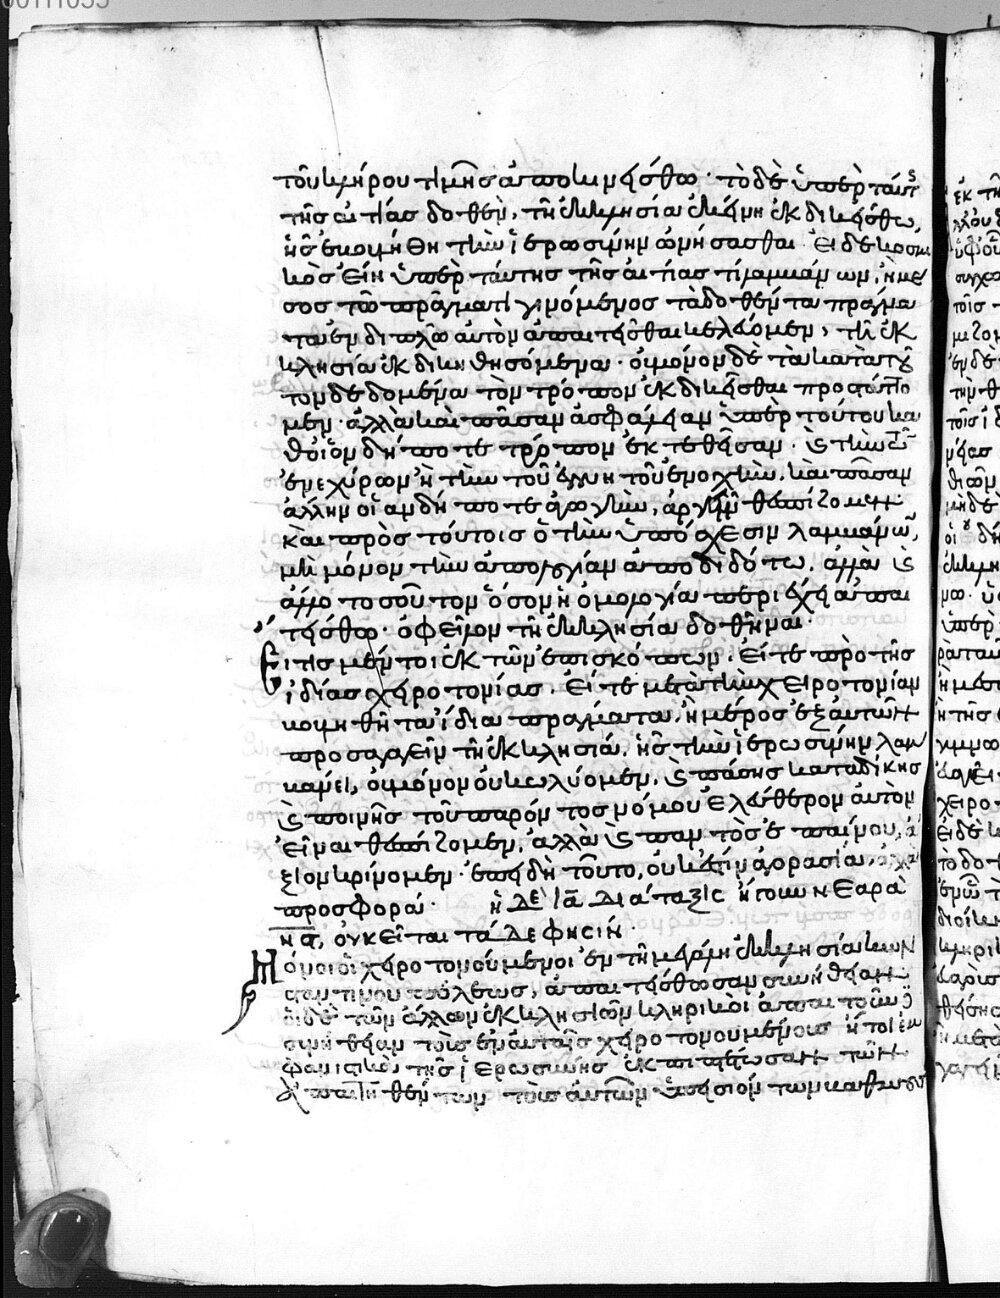 τοῦ κλήρου τιμῆς ἀποκινείσθω· τὸ δὲ ὑπὲρ ταύτ
τῆς αἰτίας δοθὲν, τῇ ἐκκλησίαι ἐκείνη ἐκδικείσθω,
ἧς ἐκοιμήθη τὴν ἱερωσύνην ὠνήσασθαι. Εἰ δὲ κοσμι
κὸς εἴη ὑπὲρ ταύτης τῆς αἰτίας τι λαμβάνων, ἢ με
σος τῶ πράγματι γινόμενος τὰ δοθέντα πράγμα
τα ἐν διπλῶ αὐτὸν ἀπαιτεῖσθαι κελεύομεν, τῆ ἐκ
κλησίαι ἐκδικηθησόμενα· οὐ μόνον δὲ τὰ κατὰ τοῦ
τον δεδομένα τὸν τρόπον ἐκδικεῖσθαι προστάττο
μεν· ἀλλὰ καὶ πᾶσαν ἀσφάλειαν ὑπὲρ τούτου κα
θ' οἷον δήποτε τρόπον ἐκτεθεῖσαν· καὶ τὴν τῶν
ἐνεχύρων ἢ τὴν τοῦ ἐγγυητοῦ ἐνοχὴν, καὶ πᾶσαν
ἄλλην οἱανδήποτε ἀγωγὴν, ἀργεῖν θεσπίζομεν·
καὶ πρὸς τούτοις ὁ τὴν ὑπόσχεσιν λαμβάνων,
μὴ μόνον τὴν ὁμολογίαν ἀποδιδότω, ἀλλὰ καὶ
ἄλλο τοσοῦτον ὅσον ἡ ὁμολογία περιέχει ἀπαι
τείσθω· ὀφεῖλον τῆ ἐκκλησίαι δοθῆναι·
Εἴ τις μέντοι ἐκ τῶν ἐπισκόπων. Εἴτε πρὸ τῆς
ἰδίας χειροτονίας. Εἴτε μετὰ τὴν χειροτονίαν
βουληθῆ τὰ ἴδια πράγματα, ἢ μέρος ἐξ αὐτῶν
προσαγαγεῖν τῆ ἐκκλησίαι, ἧς τὴν ἱερωσύνην λαμ
βάνει, οὐ μόνον οὐ κωλύομεν, καὶ πάσης καταδίκης
καὶ ποινῆς τοῦ παρόντος νόμου ἐλεύθερον αὐτὸν
εἶναι θεσπίζομεν, ἀλλὰ καὶ παντὸς ἐπαίνου, ἄ
ξιον κρίνομεν· ἐπειδὴ τοῦτο, οὐκ ἔστιν ἀγορασία, ἀλλὰ
προσφορά· ἡ δὲ ια διάταξις ἤγουν νεαρὰ
να, οὐ κεῖται τάδε φησίν·
Μόνοι οἱ χειροτονούμενοι ἐν τῆ μεγάλη ἐκκλησίαι Κων
σταντίνου πόλεως, ἀπαιτείσθωσαν συνήθειαν
οἱ δὲ τῶν ἄλλων ἐκκλησιῶν κληρικοὶ
συνήθειαν τοῖς ἐναυταῖς χειροτονουμένοις ἤτοι ἐμ
φανιστικὸν τῆς ἱερωσύνης